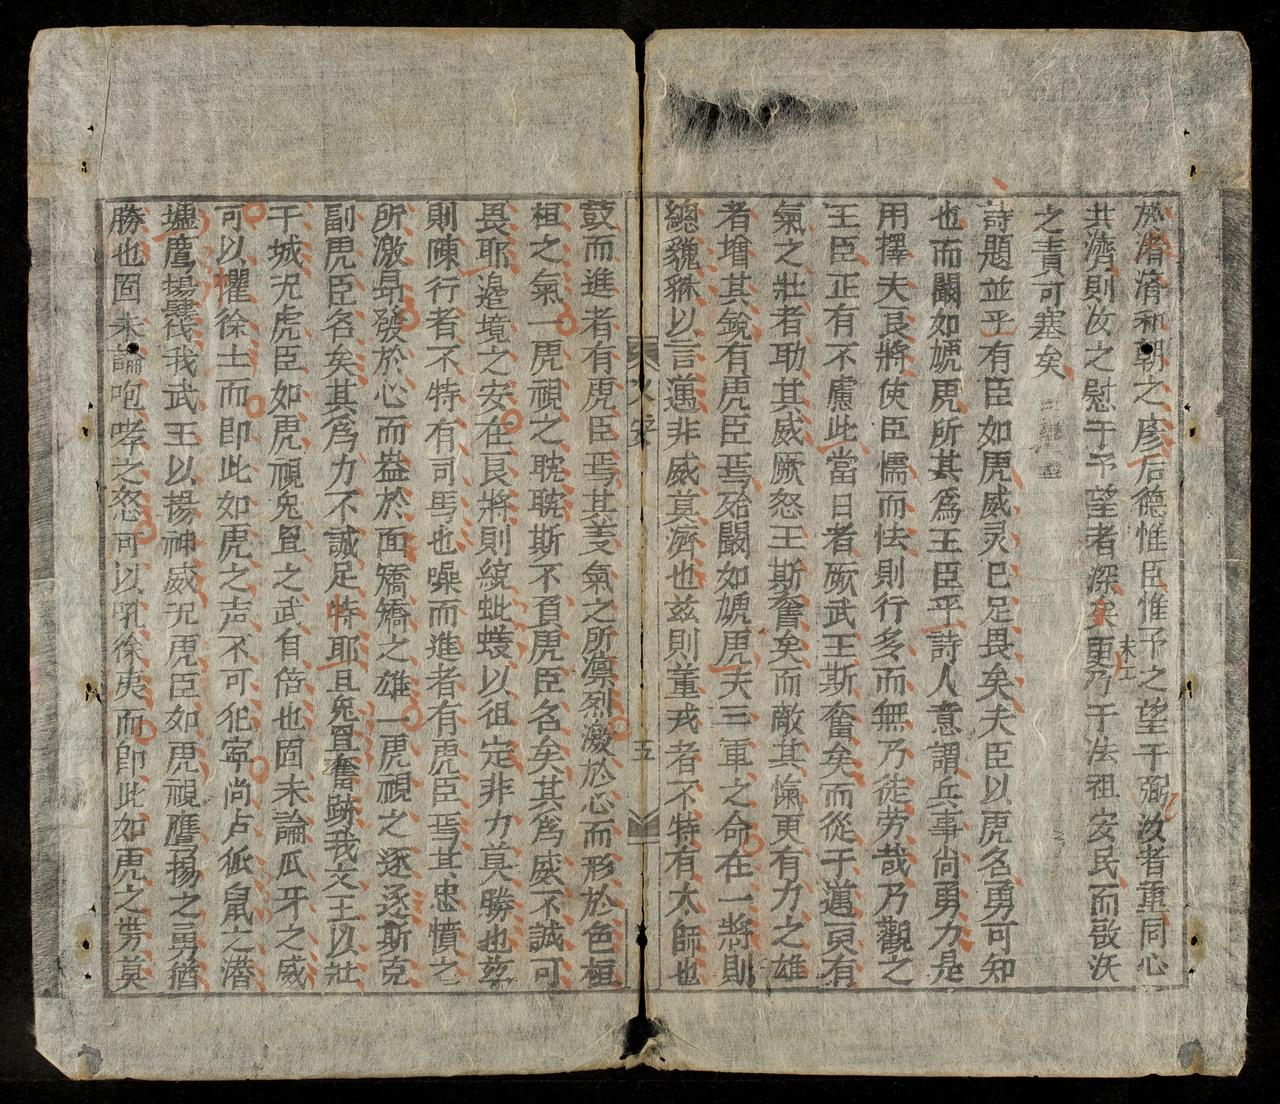 於濟濟和朝之彦后德惟臣惟予之望干弼汝者重同心
共濟則汝之慰于予望者深矣更乃于法祖安民而敬沃
末工
之責可塞矣
詩題並乎有臣如虎威灵已足畏矣夫臣以虎名勇可知
也而闞如虓虎所其為王臣乎詩人意謂兵事尚勇力是
用擇夫良將使臣懦而怯則行多而無乃徒劳哉乃觀之
王臣正有不慮此當日者厥武王斯奮矣而從于邁更有
氣之壯者助其威厥怒王斯奮矣而敵其愾更有力之雄
者增其銳有虎臣焉殆闞如虓虎夫三軍之命在一將則
總貔貅以言邁非威莫濟也兹則董戎者不特有太師也
五
鼓而進者有虎臣焉其羙氣之所凛烈激於心而形於色桓
桓之氣一虎視之耽耽斯不負虎臣名矣其為威不誠可
畏耶邉境之安在良將則統蚍蜉以徂定非力莫勝也兹
則陳行者不特有司馬也噪而進者有虎臣焉其忠憤之
所激昻發於心而盎於面矯矯之雄一虎視之逐逐斯克
副虎臣名矣其為力不誠足恃耶且兔罝奮跡我文王以壯
干城况虎臣如虎視兔罝之武自倍也固未論瓜牙之威
可以懼徐土而即此如虎之声不可犯寧尚占狐鼠之潜
墟鷹揚肆伐我武王以揚神威况虎臣如虎視鷹揚之勇猶
勝也固未論咆哮之怒可以乳徐夷而即此如虎之势莫